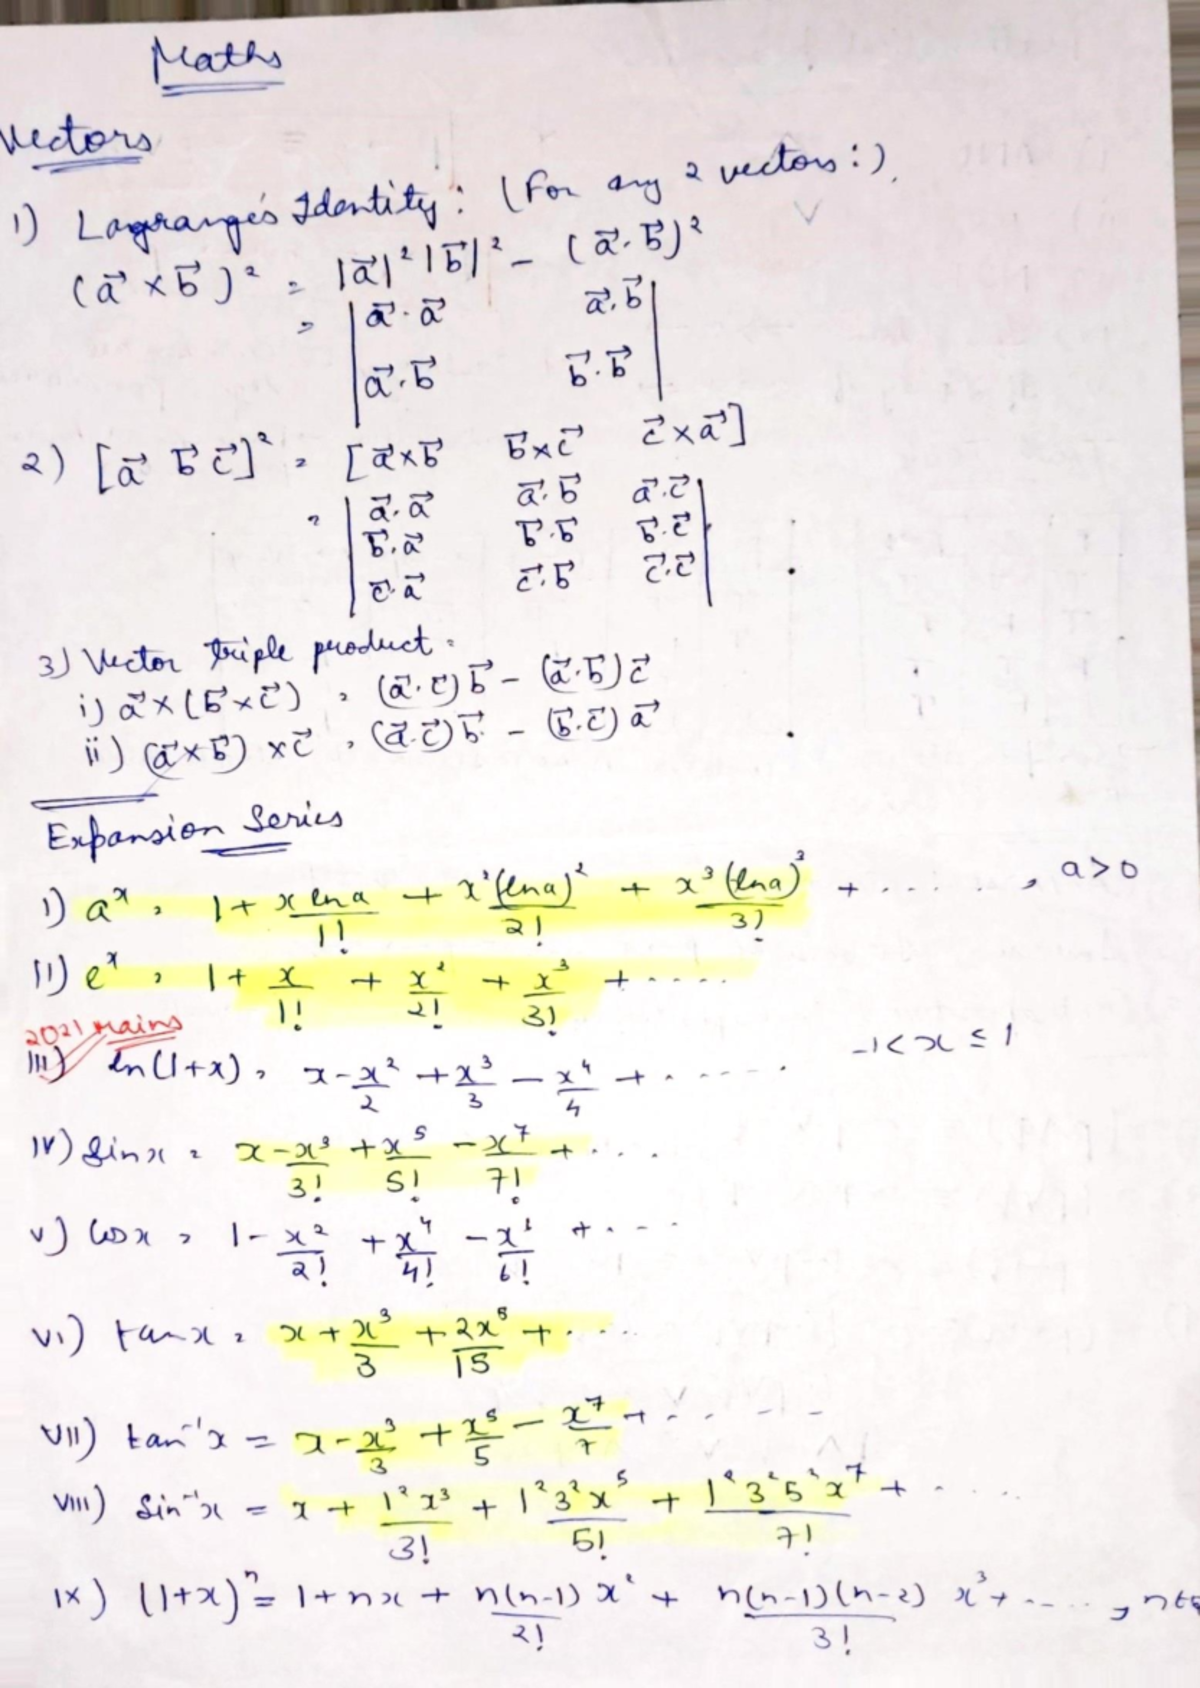 Maths
Vectors
1) Lagrange's Identity: (For any 2 vectors:).
(a⃗ × b⃗)² = |a⃗|² |b⃗|² - (a⃗ · b⃗)²
= | a⃗·a⃗ a⃗·b⃗ |
| a⃗·b⃗ b⃗·b⃗ |
2) [a⃗ b⃗ c⃗]² = [a⃗×b⃗ b⃗×c⃗ c⃗×a⃗]
= | a⃗·a⃗ a⃗·b⃗ a⃗·c⃗ |
| b⃗·a⃗ b⃗·b⃗ b⃗·c⃗ |
| c⃗·a⃗ c⃗·b⃗ c⃗·c⃗ |
3) Vector triple product =
i) a⃗×(b⃗×c⃗) = (a⃗·c⃗)b⃗ - (a⃗·b⃗)c⃗
ii) (a⃗×b⃗)×c⃗ = (a⃗·c⃗)b⃗ - (b⃗·c⃗)a⃗
Expansion Series
i) aˣ = 1 + x ln a/1! + x²(ln a)²/2! + x³(ln a)³/3! + ..... , a>0
ii) eˣ = 1 + x/1! + x²/2! + x³/3! + .....
2021 mains
iii) ln(1+x) = x - x²/2 + x³/3 - x⁴/4 + ...... -1<x≤1
iv) Sin x = x - x³/3! + x⁵/5! - x⁷/7! + ....
v) Cos x = 1 - x²/2! + x⁴/4! - x⁶/6! + ....
vi) tan x = x + x³/3 + 2x⁵/15 + ....
vii) tan⁻¹x = x - x³/3 + x⁵/5 - x⁷/7 + ......
viii) Sin⁻¹x = x + 1²x³/3! + 1²3²x⁵/5! + 1²3²5²x⁷/7! + .....
ix) (1+x)ⁿ = 1 + nx + n(n-1)x²/2! + n(n-1)(n-2)x³/3! + ..... , n∈